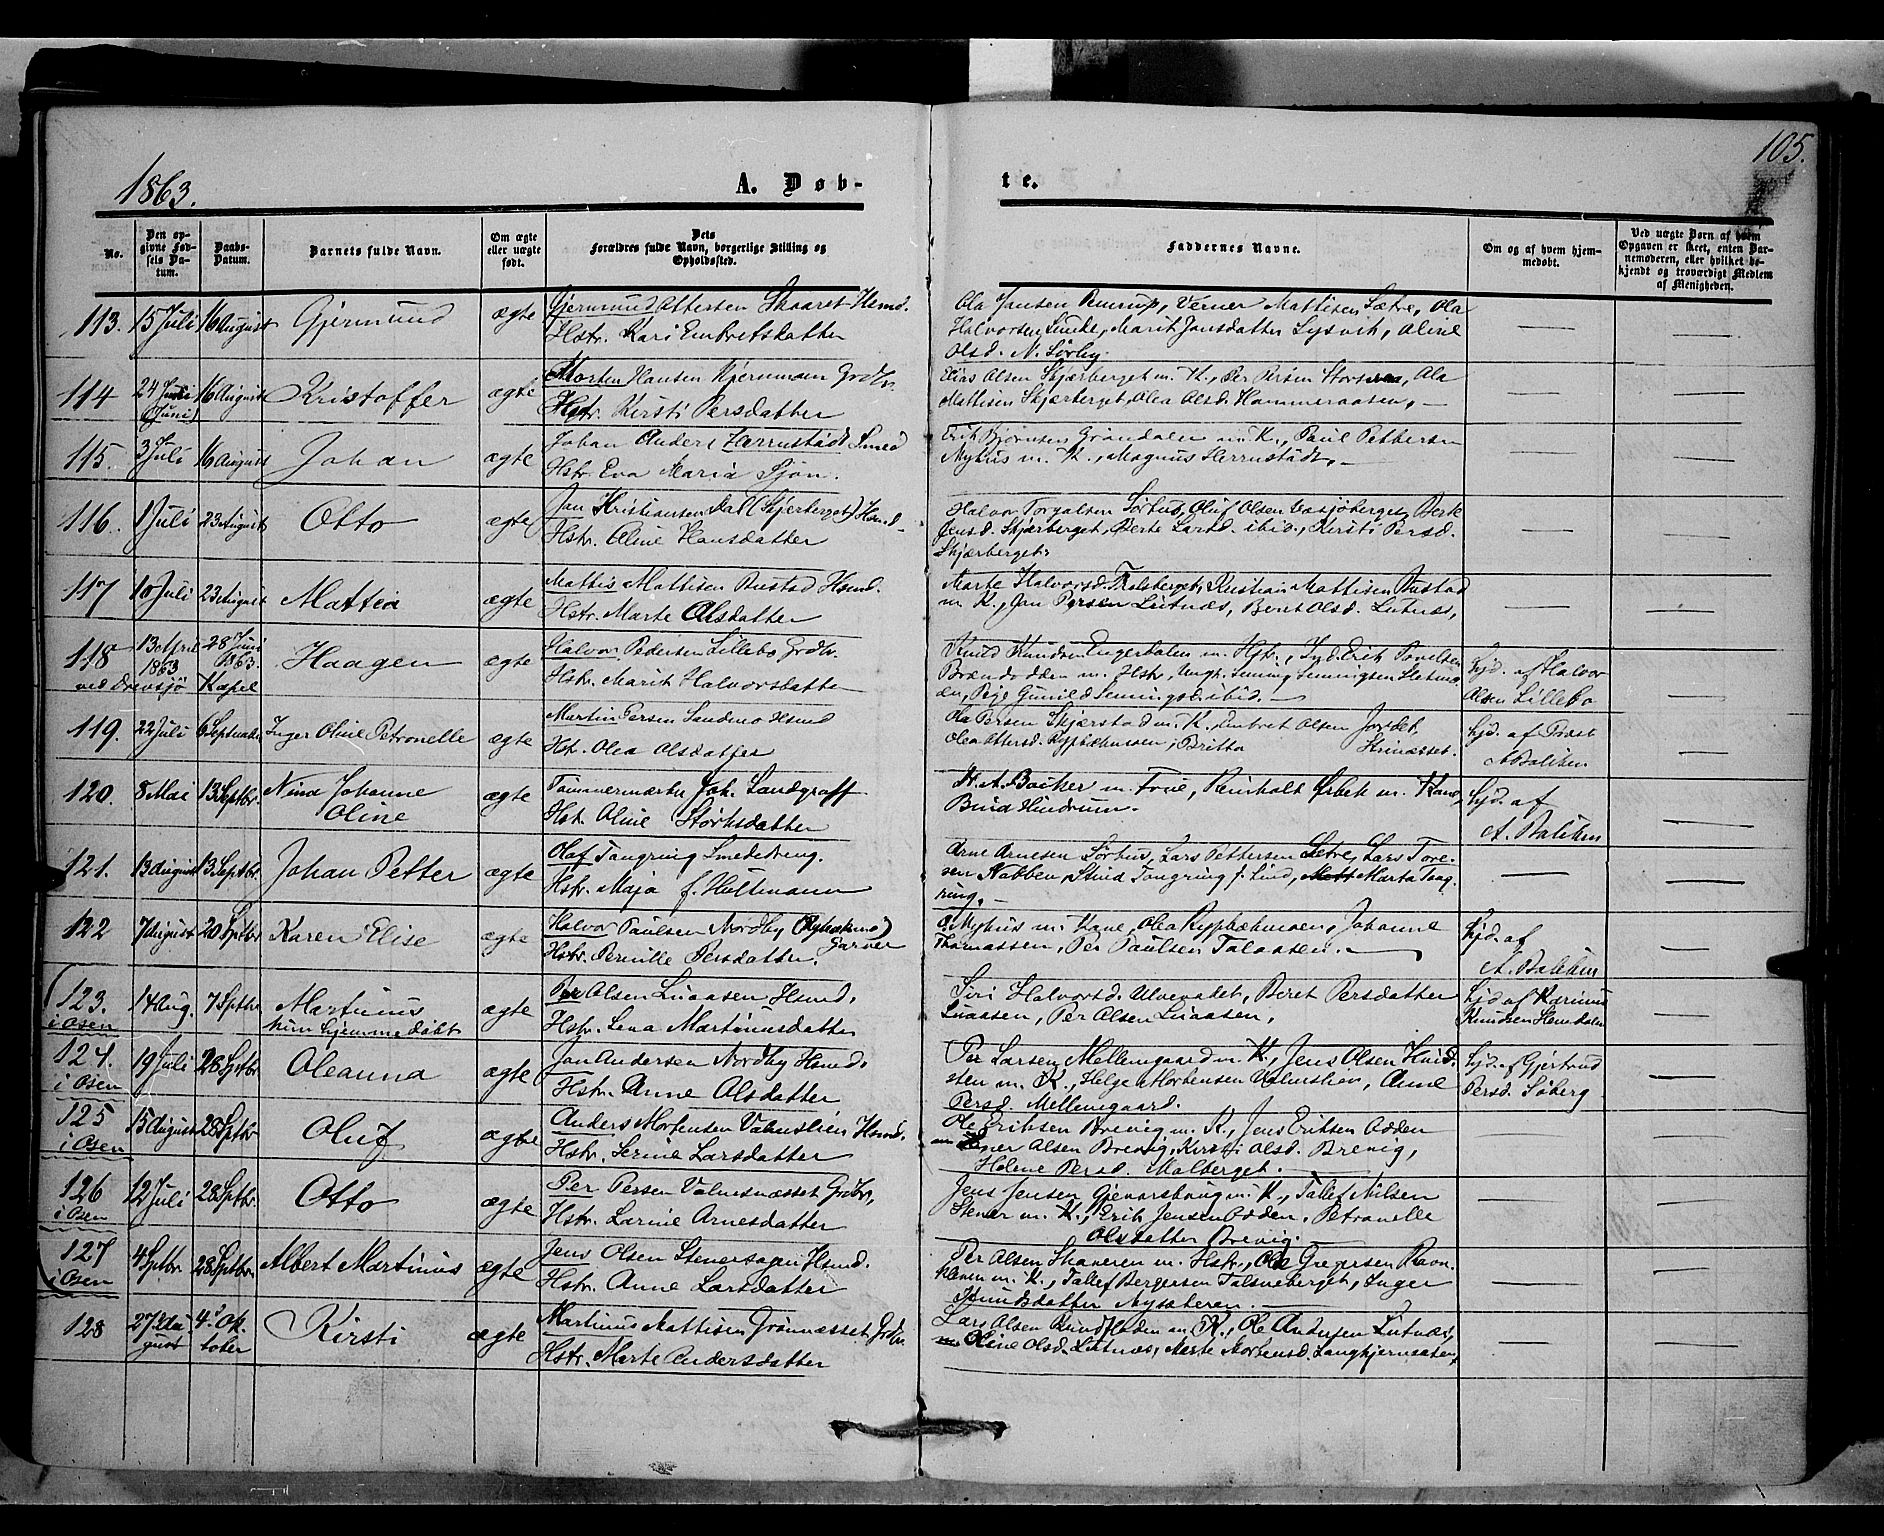 105.
1863.
A. Døb-
te.
No.
Den op-
givne Fød-
sels Da-
tum.
Daabs-
Datum.
Barnets fulde Navn.
Om ægte
eller uægte
født.
Dets
Forældres fulde Navn, borgerlige Stilling og
Opholdssted.
Faddernes Navne.
Om og af hvem hjem-
medøbt.
Ved uægte Børn af hvem
Opgaven er skeet, enten Bar-
nemoderen, eller hvilket be-
kjendt og troværdigt Medlem
af Menigheden.
113. 15 Juli 16 August Gjermund ægte
Gjermund Ottersen Skaaret Hsmd.
Hstr. Kari Embretsdatter
Ola Jansen Rumrup, Verner Mattisen Sætre, Ola
Halvorsen Linde, Marit Jansdatter Lysvik, Oline
Olsd. N. Sörby.
114 24 Juli (Juni) 16 August Kristoffer ægte
Morten Hansen Kjernmoen Grdbr.
Hstr. Kirsti Persdatter
Elias Olsen Skjærberget m. K., Per Persen, Ola
Mattisen Skjærberget, Olea Olsd. Hammeraasen,
115. 3 Juli 16 August Johan ægte
Johan Anders Herrnstädt Smed
Hstr. Eva Maria Sjön.
Erik Björnsen Gröndalen m. K., Paul Pettersen
Nyhus m. K., Magnus Herrnstädt,
116. 1 Juli 23 August Otto ægte
Jan Kristiansen Dal (Skjærberget) Hsmd
Hstr. Oline Hansdatter
Halvor Torgalsen Sörhus, Oluf Olsen Vassjöberget, Berte
Jensd. Skjærberget, Berte Larsd. ibid., Kirsti Persd.
Skjærberget.
117 10 Juli 23 August Mattea ægte
Mattis Mattisen Rustad Hsmd.
Hstr. Marte Olsdatter
Marte Halvorsd. Kristian Mattisen Rustad
m. K., Jan Persen Lutnæs, Beret Olsd. Lutnæs,
118 13 April 1863 28 Juni 1863. Haagen ægte
ved Drevsjö Kapel
Halvor Pedersen Lillebo Grdbr.
Hstr. Marit Halvorsdatter
Knud Knudsen Engerdalen m. Hstr., Erik Povelsen
Brændodden m. Hstr, Ungk. Jenning Jenningsen
Pige Gunild Jenningsd. ibid.
Hjd. af Halvor
Olsen Lillebo
119. 22 Juli 6 September Inger Oline Petronelle ægte
Martin Persen Sandmo Hsmd
Hst. Olea Olsdatter
Ola Persen Skjærstad m. K., Embret Olsen Jordet,
Olea Ottersd. Britta Strinæsset.
hjd. af Provst
A Baliken
120. 8 Mai 13 Septbr. Nina Johanne
Oline ægte
Tømmermærker Joh. Landgraff
Hstr. Oline Störksdatter
H. A. Backer m. Frue, Reinholt m. Kone,
hjd. af
A. Baliken
121. 13 August 13 Septbr. Johan Petter ægte
Olaf Tangring Smededreng.
Hstr. Maja f. Hultmann
Arne Arnesen Sörhus, Lars Pettersen Sætre, Lars Tore-
sen Nabben, Marta Tang-
ring.
122 7 August 20 Septbr Karen Elise ægte
Halvor Paulsen Nordby
Garver
Hstr. Pernille Persdatter.
O. Myhus m. Kone, Olea Johanne
Thomassen, Per Paulsen Talaasen.
hjd. af
A. Baliken
123. 14 Aug. 7 Septbr. Martinus ægte
i Osen kun hjemmedøbt
Per Olsen Luaasen Hsmd,
Hstr. Lena Martinusdatter
Siri Halvorsd. Ulvevadet, Beret Persdatter
Luaasen, Per Olsen Luaasen,
hjd af Karinus
Knudsen Hemdalen
124. 19 Juli 28 Septbr. Oleanna ægte
i Osen
Jan Andersen Nordby Hsmd,
Hstr. Anne Olsdatter
Per Larsen Mellemgaard m. K., Jens Olsen
m. K., Helge Mortensen Valmstien, Anne
Persd. Mellemgaard.
hjd. af Gjertrud
Persd. Söberg
125 15 August 28 Septbr Oluf ægte
i Osen
Anders Mortensen Valmstien Hsmd.
Hstr. Serine Larsdatter
Ole Eriksen Brevig m. K., Jens Eriksen Odden
Ener Olsen Brevig, Kirsti Olsd. Brevig,
Helene Persd. Malberget.
126 12 Juli 28 Septbr. Otto ægte
i Osen
Per Persen Valnesnæsset Grdbr,
Hstr. Larine Arnesdatter
Jens Jensen Gjevarshaug m. K., Tallef Nilsen
Stener m. K., Erik Jensen Odden, Petronelle
Olsdatter Brevig.
127 4 Septbr. 28 Septbr. Albert Martinus ægte
i Osen
Jens Olsen Stenersagen Hsmd.
Hstr. Anne Larsdatter
Per Olsen Skaveren m. Hstr., Ole Gregersen Ravn-
kleven m. K., Tallef Bergersen Talsneberget, Inger
Knudsdatter Nysæteren.
128 27 Au-
gust 4 Ok-
tober Kirsti ægte
Martinus Mattisen Grönnæsset Grdbr.
Hstr. Marte Andersdatter
Lars Olsen Rundfloden m. K., Ole Andersen Lutnæs,
Oline Olsd. Lutnæs, Marte Mortensd. Langkjernaasen,